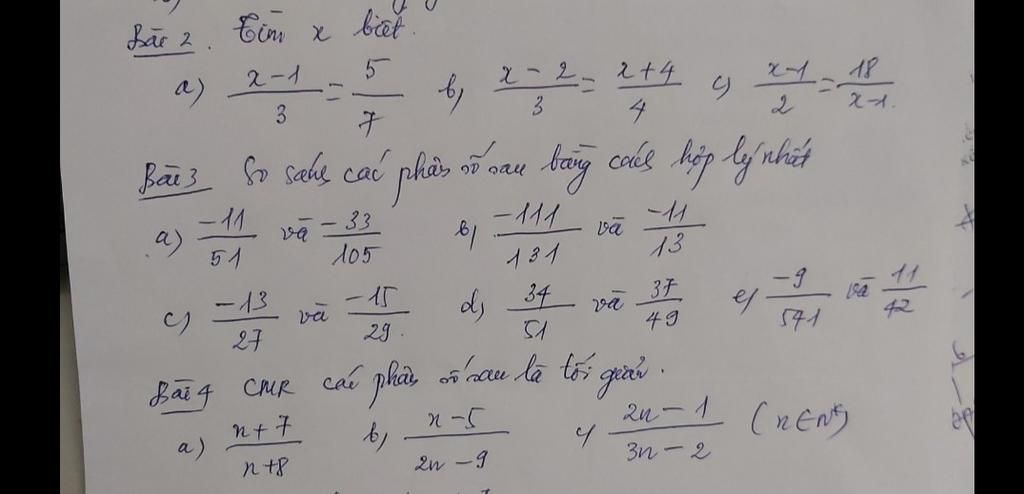 Bài 2. Tìm x biết.
a) \frac{x-1}{3} = \frac{5}{7} b) \frac{x-2}{3} = \frac{x+4}{4} c) \frac{x-1}{2} = \frac{18}{x-1}.
Bài 3 So sánh các phân số sau bằng cách hợp lý nhất
a) \frac{-11}{51} và \frac{-33}{105} b) \frac{-111}{131} và \frac{-11}{13}
c) \frac{-13}{27} và \frac{-15}{29}. d) \frac{34}{51} và \frac{37}{49} e) \frac{-9}{571} và \frac{11}{42}
Bài 4 CMR các phân số sau là tối giản.
a) \frac{n+7}{n+8} b) \frac{n-5}{2n-9} c) \frac{2n-1}{3n-2} (n∈N*)